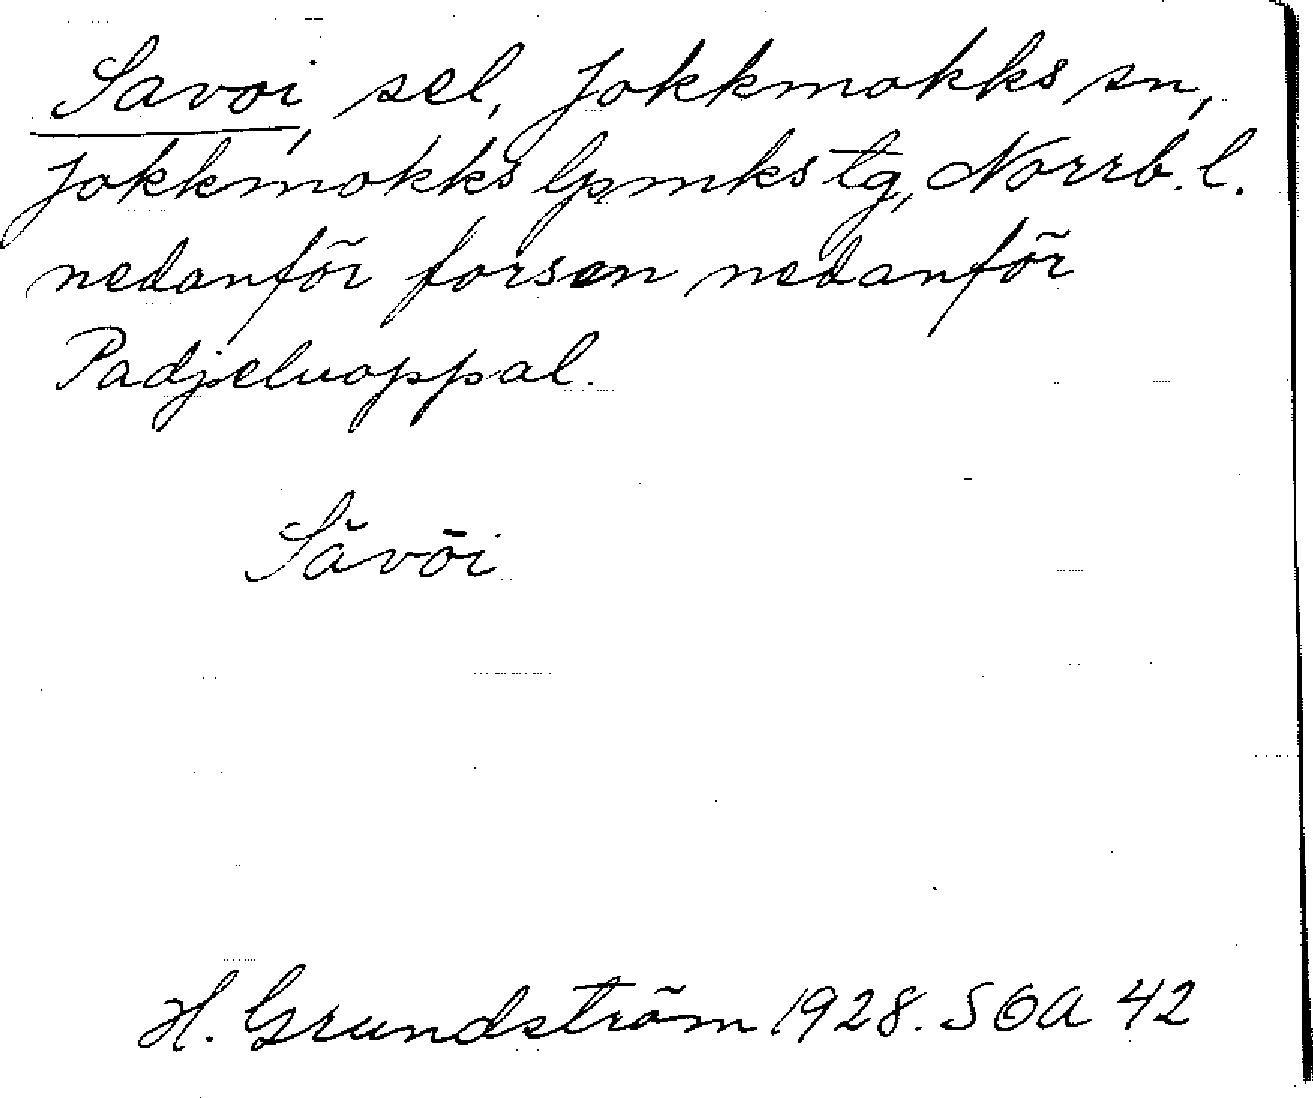 Savoi, sel, Jokkmokks sn,
Jokkmokks lpmks tg, Norrb. l.
nedanför forsen nedanför
Padjeluoppal.
Săvōi
H. Grundström 1928. SOA 42